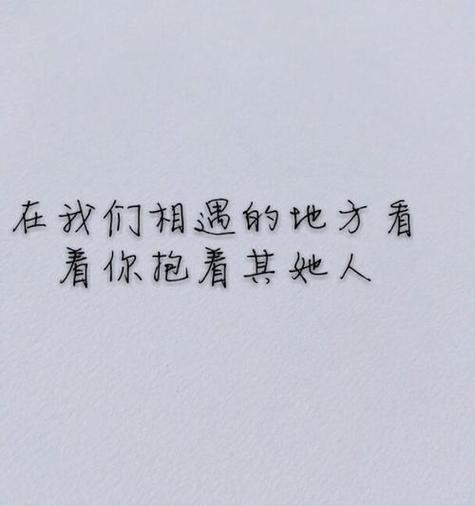 在我们相遇的地方看
着你抱着其她人